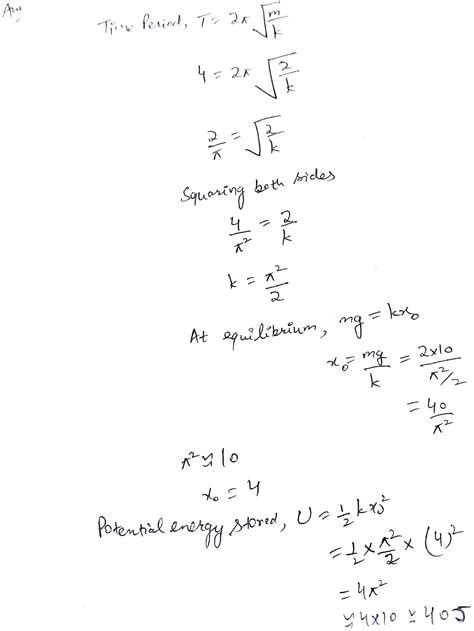 Ans,
Time Period, T = 2π √(m/k)
4 = 2π √(2/k)
2/π = √(2/k)
Squaring both sides
4/π² = 2/k
k = π²/2
At equilibrium, mg = kx₀
x₀ = mg/k = 2×10/(π²/2)
= 40/π²
π² ≈ 10
x₀ = 4
Potential energy stored, U = 1/2 kx₀²
= 1/2 × π²/2 × (4)²
= 4π²
≈ 4×10 ≈ 40J